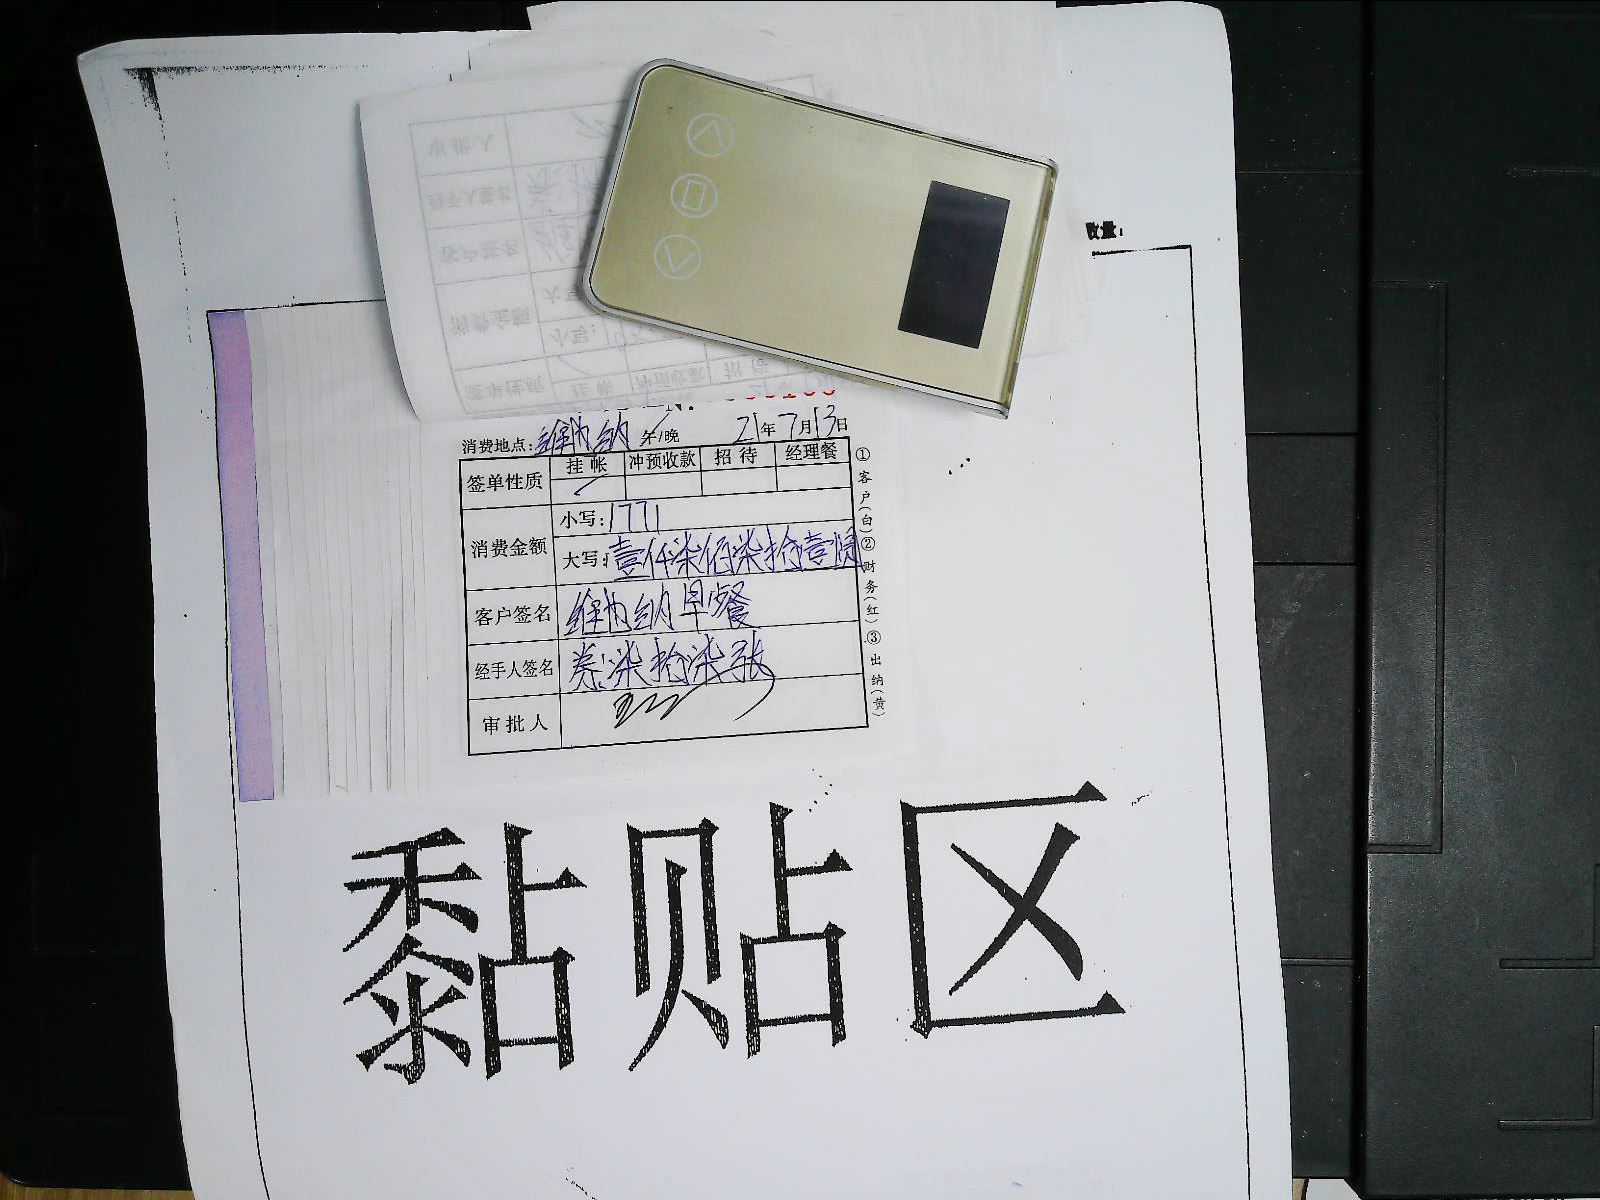 数量：
消费地点：维纳纳 午/晚 21年7月13日
签单性质 挂帐 冲预收款 招待 经理餐
消费金额 小写：1771
大写：壹仟柒佰柒拾壹圆
客户签名 维纳纳早餐
经手人签名 券柒拾柒张
审批人
①客户(白)②财务(红)③出纳(黄)
黏贴区